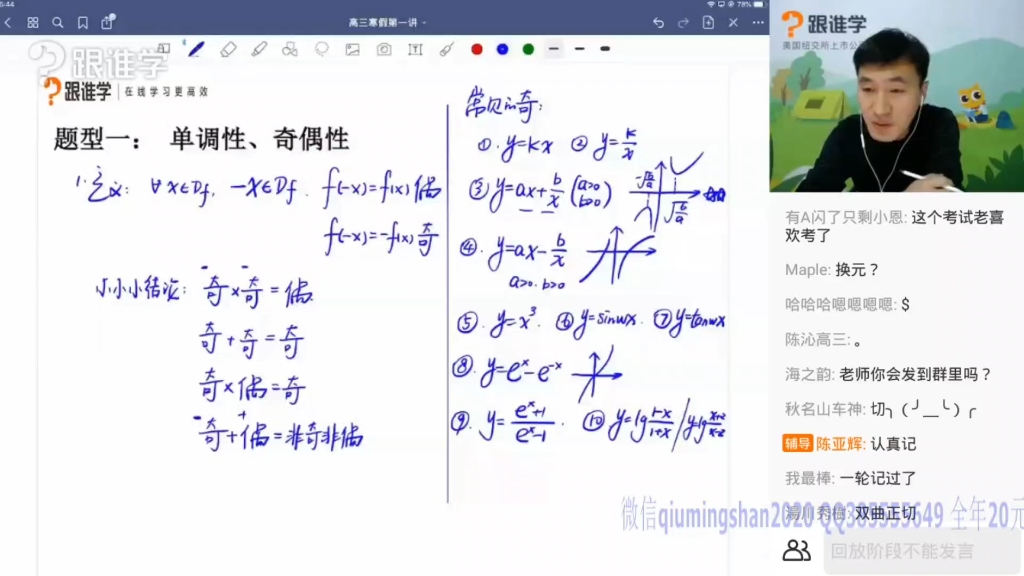 6:44
78%
高三寒假第一讲
跟谁学
跟谁学 | 在线学习更高效
题型一： 单调性、奇偶性
1.定义: ∀x∈Df, -x∈Df. f(-x)=f(x) 偶
f(-x)=-f(x) 奇
小小小结论: 奇×奇=偶
奇+奇=奇
奇×偶=奇
奇+偶=非奇非偶
常见的奇:
①. y=kx ② y=k/x
③ y=ax+b/x (a>0 b>0)
④. y=ax-b/x
a>0. b>0
⑤. y=x³. ⑥ y=sinwx. ⑦ y=tanwx
⑧. y=eˣ-e⁻ˣ
⑨. y=(eˣ+1)/(eˣ-1). ⑩ y=lg(1-x)/(1+x) / y=lg(x+2)/(x-2)
跟谁学
美国纽交所上市公
有A闪了只剩小恩: 这个考试老喜
欢考了
Maple: 换元？
哈哈哈嗯嗯嗯嗯: $
陈沁高三: 。
海之韵: 老师你会发到群里吗？
秋名山车神: 切╮(╯__╰)╭
辅导 陈亚辉: 认真记
我最棒: 一轮记过了
双曲正切
微信qiumingshan2020 QQ385555649 全年20元
回放阶段不能发言